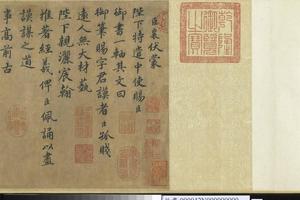 臣襄伏蒙
陛下特遣中使賜臣
御書一軸其文曰
御筆賜字君謨者臣孤賤
遠人無大材藝
陛下親灑宸翰
推著經義俾臣佩誦以盡
謨謀之道
事高前古